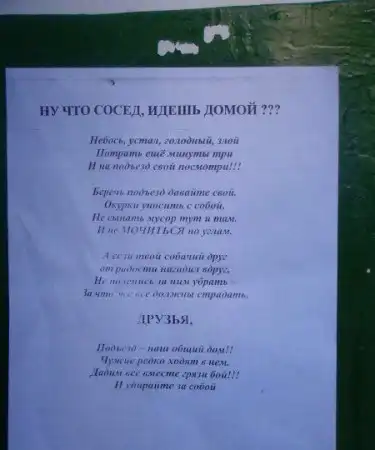 НУ ЧТО СОСЕД, ИДЕШЬ ДОМОЙ ???
Небось, устал, голодный, злой
Потрать ещё минуты три
И на подъезд свой посмотри!!!
Беречь подъезд давайте свой.
Окурки уносить с собой.
Не сыпать мусор тут и там.
И не МОЧИТЬСЯ по углам.
А если твой собачий друг
от радости нагадил вдруг,
Не поленись за ним убрать –
За что же все должны страдать.
ДРУЗЬЯ,
Подъезд – наш общий дом!!
Чужие редко ходят в нем.
Дадим все вместе грязи бой!!!
И убирайте за собой